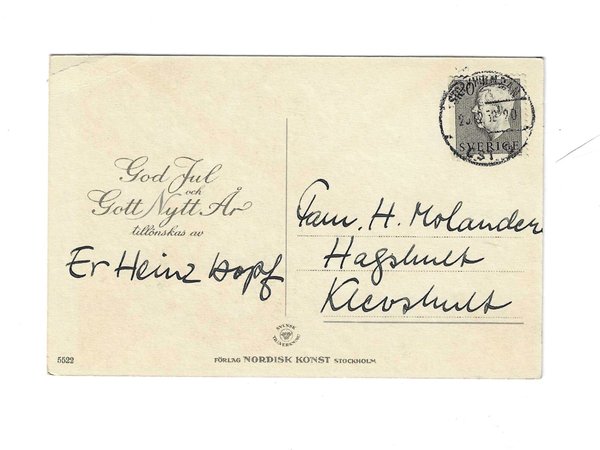 God Jul
och
Gott Nytt År
tillönskas av
Er Heinz Hopf
SVERIGE
Fam. H. Molander
Hagshult
Klevshult
SVENSK
TILLVERKNING
5522
FÖRLAG NORDISK KONST STOCKHOLM